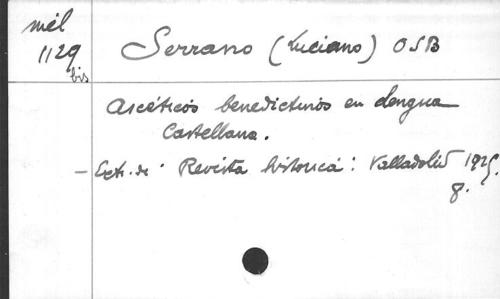 mél
1129
bis
Serrano (Luciano) OSB
Ascéticos benedictinos en lengua
Castellana.
- Extr. de : Revista historica : Valladolid 1925.
8.